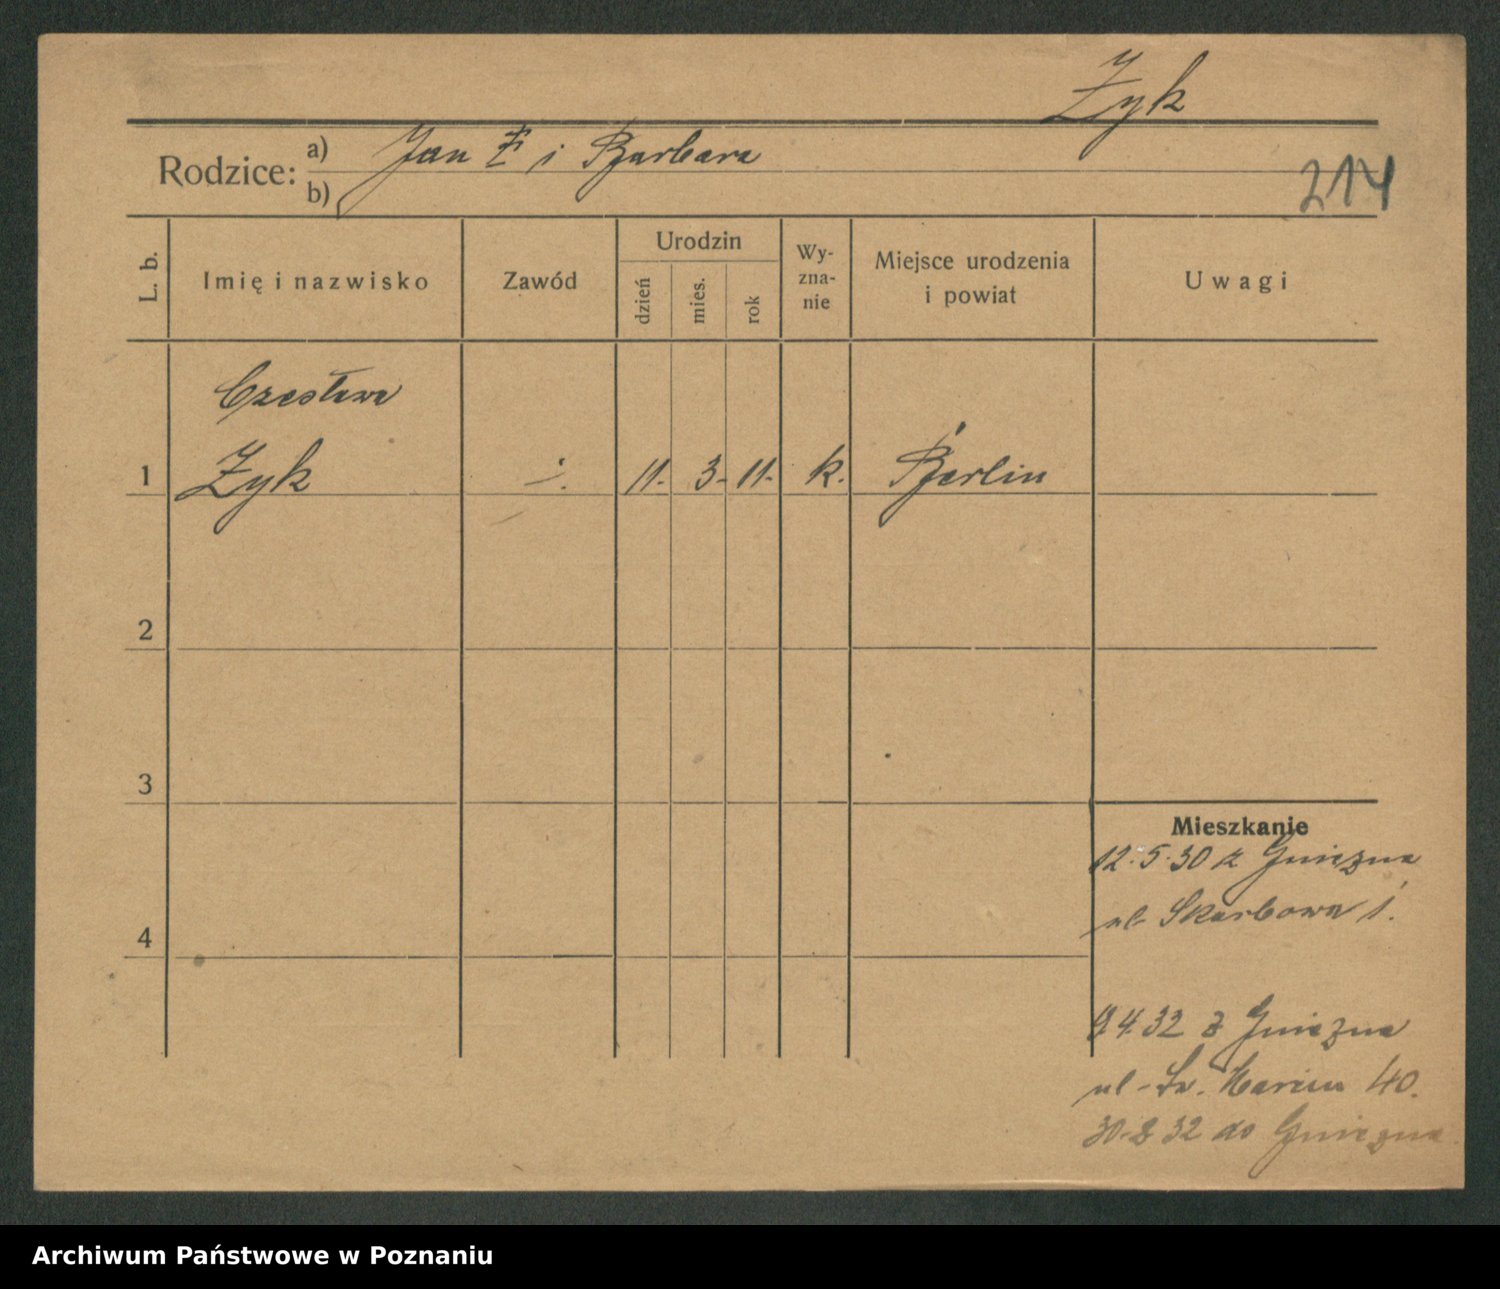 Żyk
Rodzice: a) Jan Ż i Barbara
b)
214
L. b.
Imię i nazwisko
Zawód
Urodzin
dzień
mies.
rok
Wy-
zna-
nie
Miejsce urodzenia
i powiat
Uwagi
Czesława
1 Żyk ·/. 11. 3. 11. k. Berlin
2
3
4
Mieszkanie
12.5.30 z Gniezna
ul. Skarbowa 1.
9.4.32 z Gniezna
ul. Św. Marcin 40.
30.8.32 do Gniezna
Archiwum Państwowe w Poznaniu